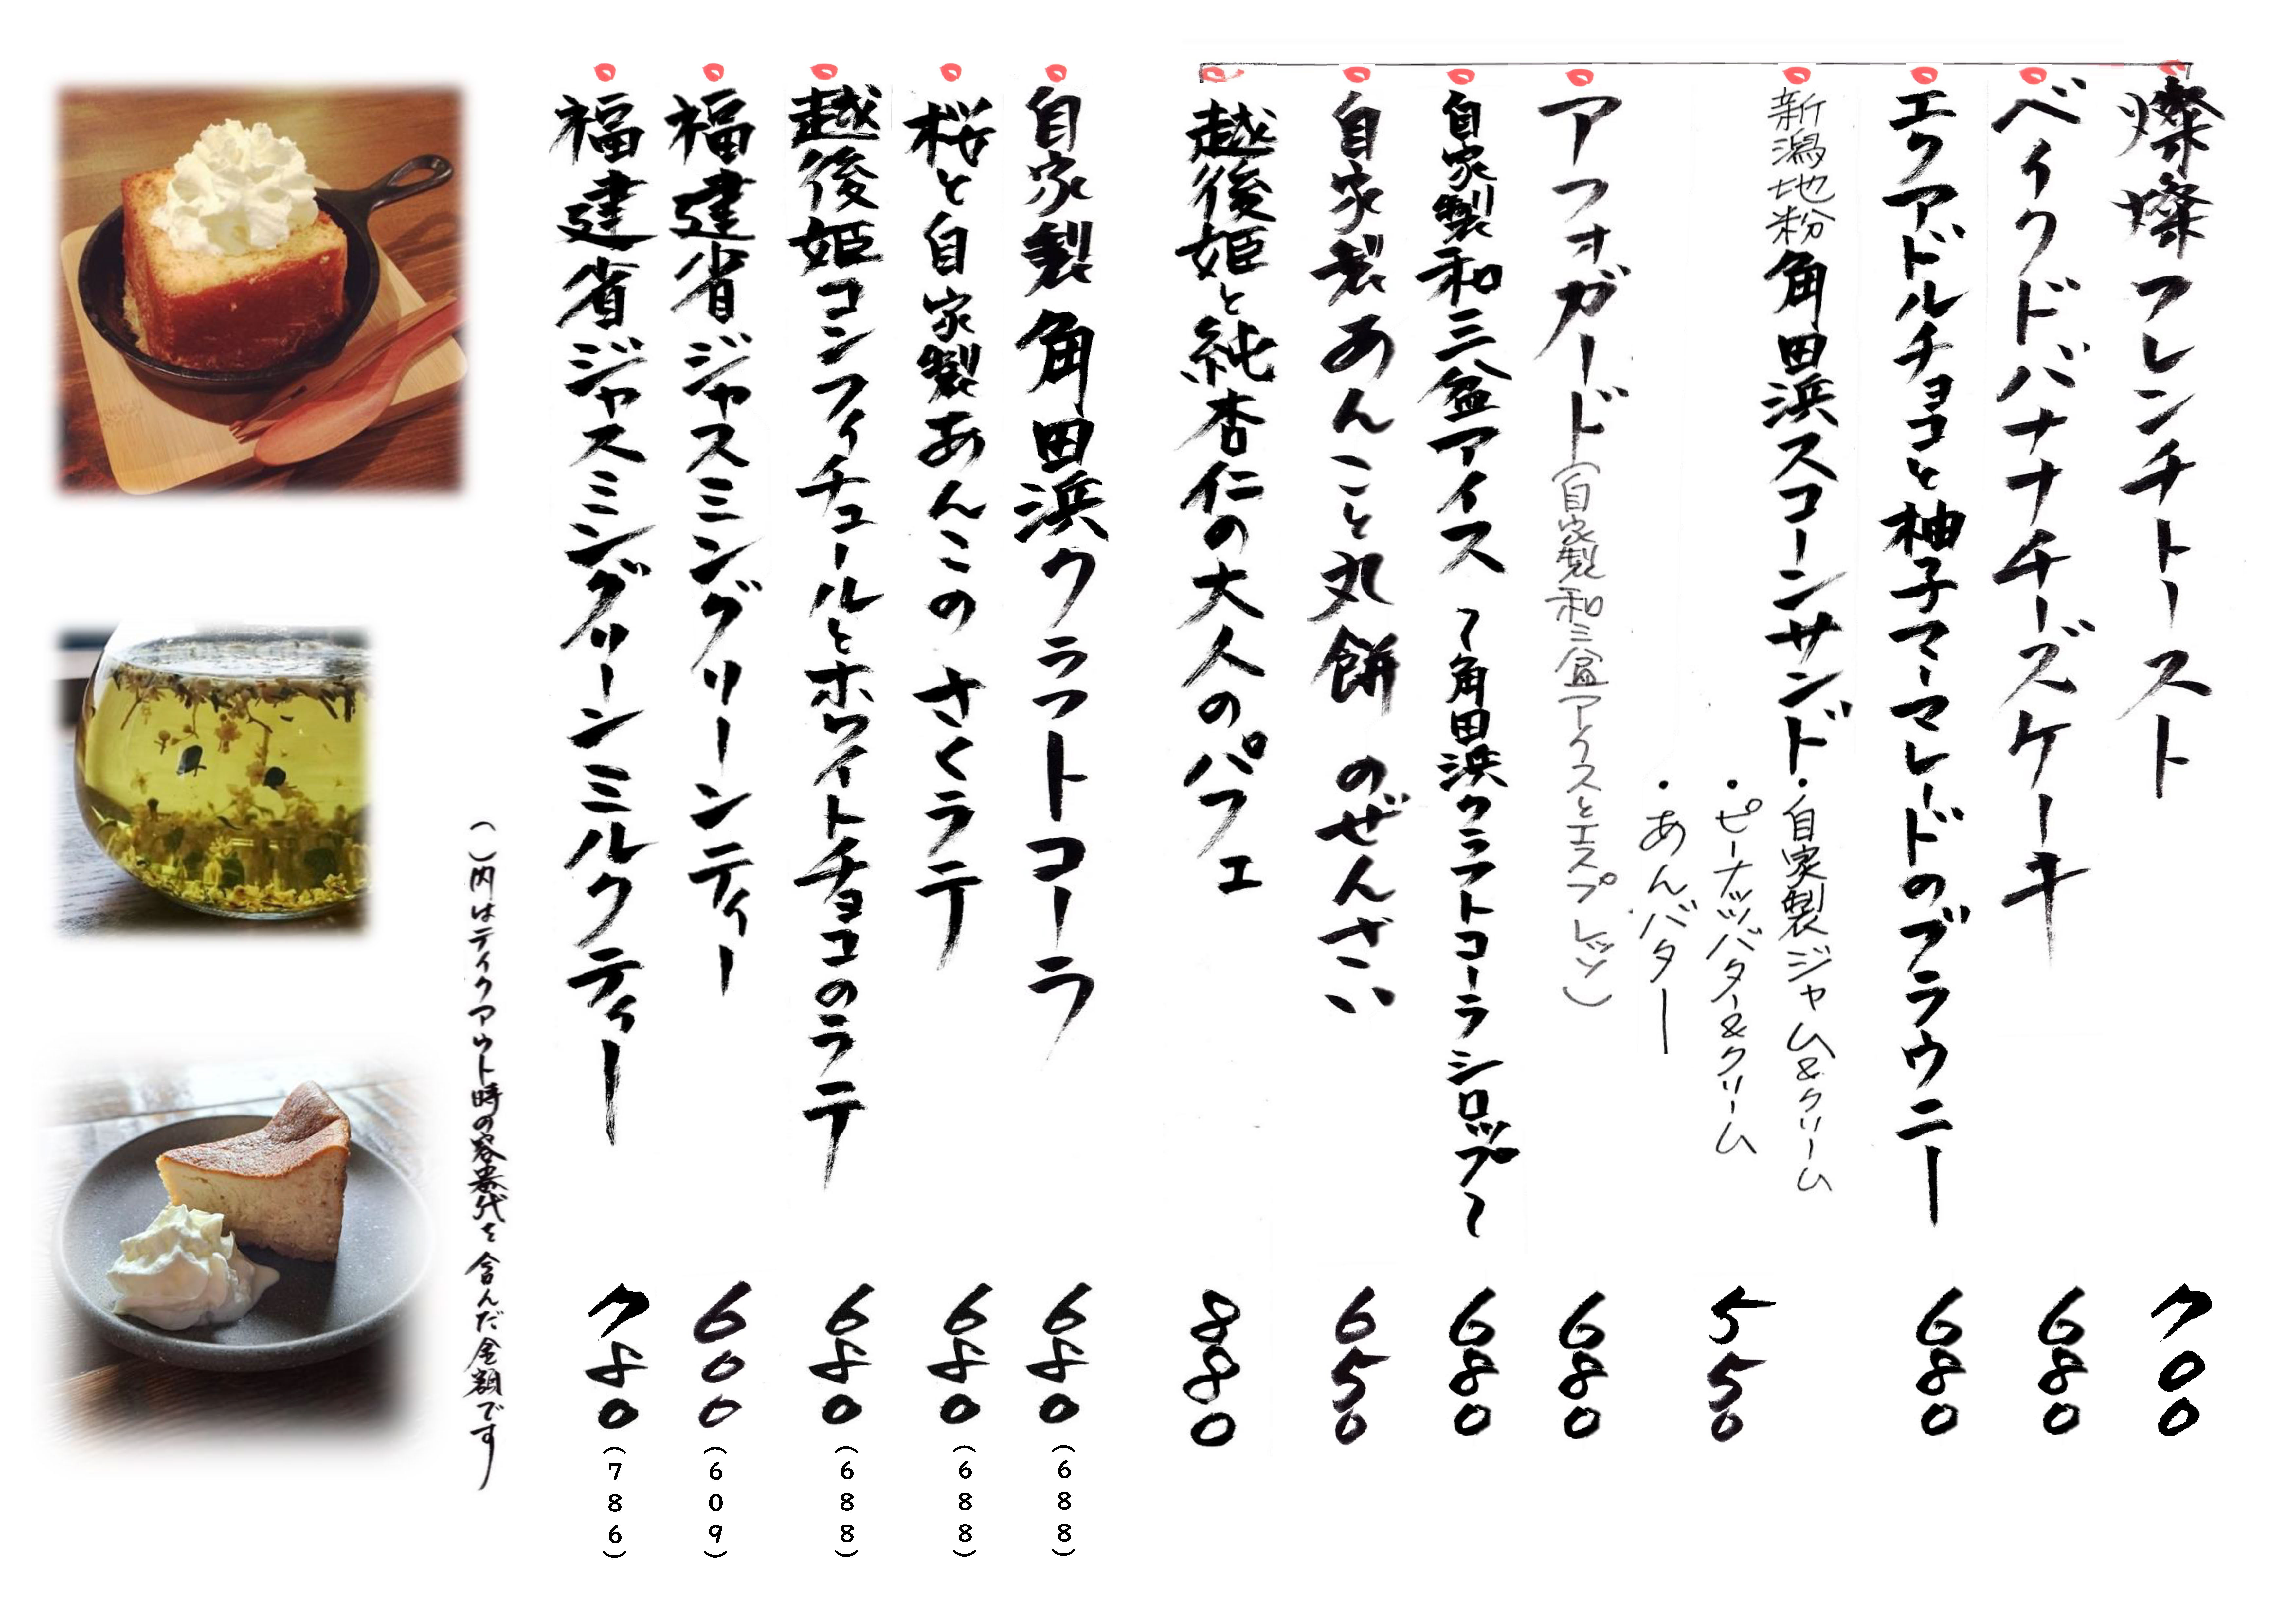 燦燦フレンチトースト 700
ベイクドバナナチーズケーキ 680
エクアドルチョコと柚子マーマレードのブラウニー 680
新潟地粉角田浜スコーンサンド・自家製ジャム&クリーム
・ピーナッツバター&クリーム 550
・あんバター
アフォガード(自家製和三盆アイスとエスプレッソ) 680
自家製和三盆アイス 〜角田浜クラフトコーラシロップ〜 680
自家製あんこと丸餅のぜんざい 650
越後姫と純杏仁の大人のパフェ 880
自家製角田浜クラフトコーラ 680(688)
桜と自家製あんこのさくラテ 680(688)
越後姫コンフィチュールとホワイトチョコのラテ 680(688)
福建省ジャスミングリーンティー 600(609)
福建省ジャスミングリーンミルクティー 780(786)
( )内はテイクアウト時の容器代を含んだ金額です